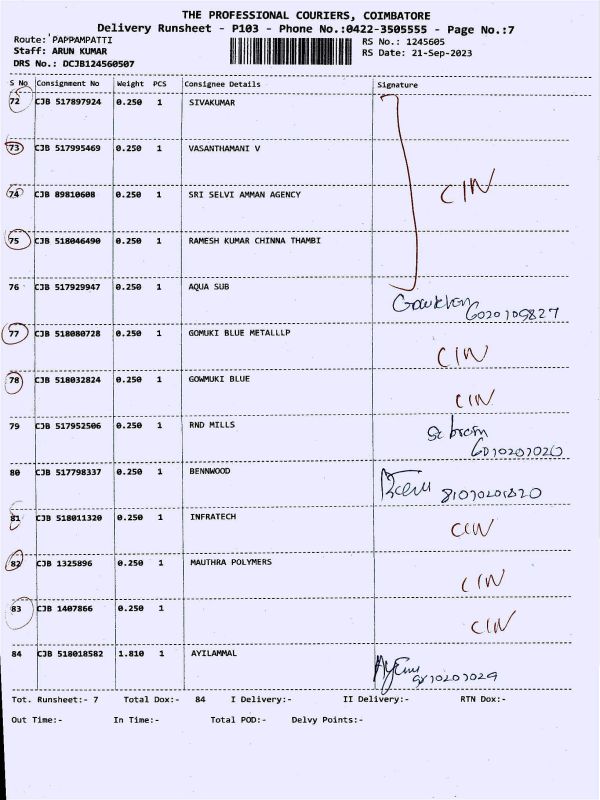 THE PROFESSIONAL COURIERS, COIMBATORE
Delivery Runsheet - P103 - Phone No.:0422-3505555 - Page No.:7
Route: PAPPAMPATTI RS No.: 1245605
Staff: ARUN KUMAR RS Date: 21-Sep-2023
DRS No.: DCJB124560507
S No Consignment No Weight PCS Consignee Details Signature
72 CJB 517897924 0.250 1 SIVAKUMAR
73 CJB 517995469 0.250 1 VASANTHAMANI V
74 CJB 89810608 0.250 1 SRI SELVI AMMAN AGENCY CIN
75 CJB 518046490 0.250 1 RAMESH KUMAR CHINNA THAMBI
76 CJB 517929947 0.250 1 AQUA SUB
77 CJB 518080728 0.250 1 GOMUKI BLUE METALLLP CIN
78 CJB 518032824 0.250 1 GOWMUKI BLUE CIN
79 CJB 517952506 0.250 1 RND MILLS
80 CJB 517798337 0.250 1 BENNWOOD
81 CJB 518011320 0.250 1 INFRATECH CIN
82 CJB 1325896 0.250 1 MAUTHRA POLYMERS CIN
83 CJB 1407866 0.250 1 CIN
84 CJB 518018582 1.810 1 AYILAMMAL
Tot. Runsheet:- 7 Total Dox:- 84 I Delivery:- II Delivery:- RTN Dox:-
Out Time:- In Time:- Total POD:- Delvy Points:-